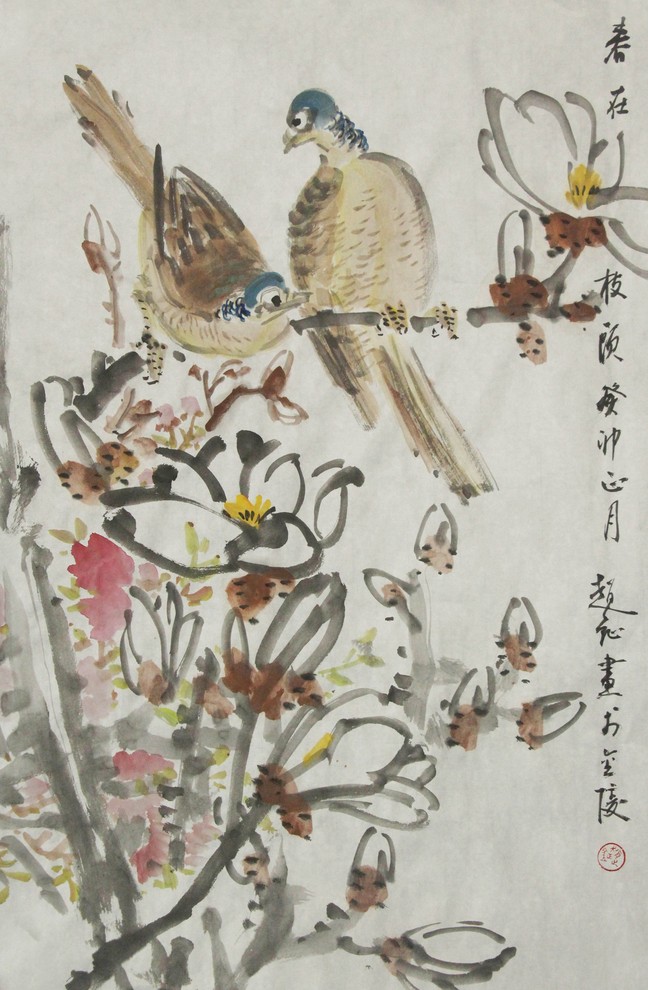 春在枝頭癸卯正月趙
畫于金陵